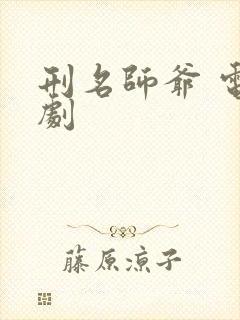 刑名師爺 電
劇
藤原涼子